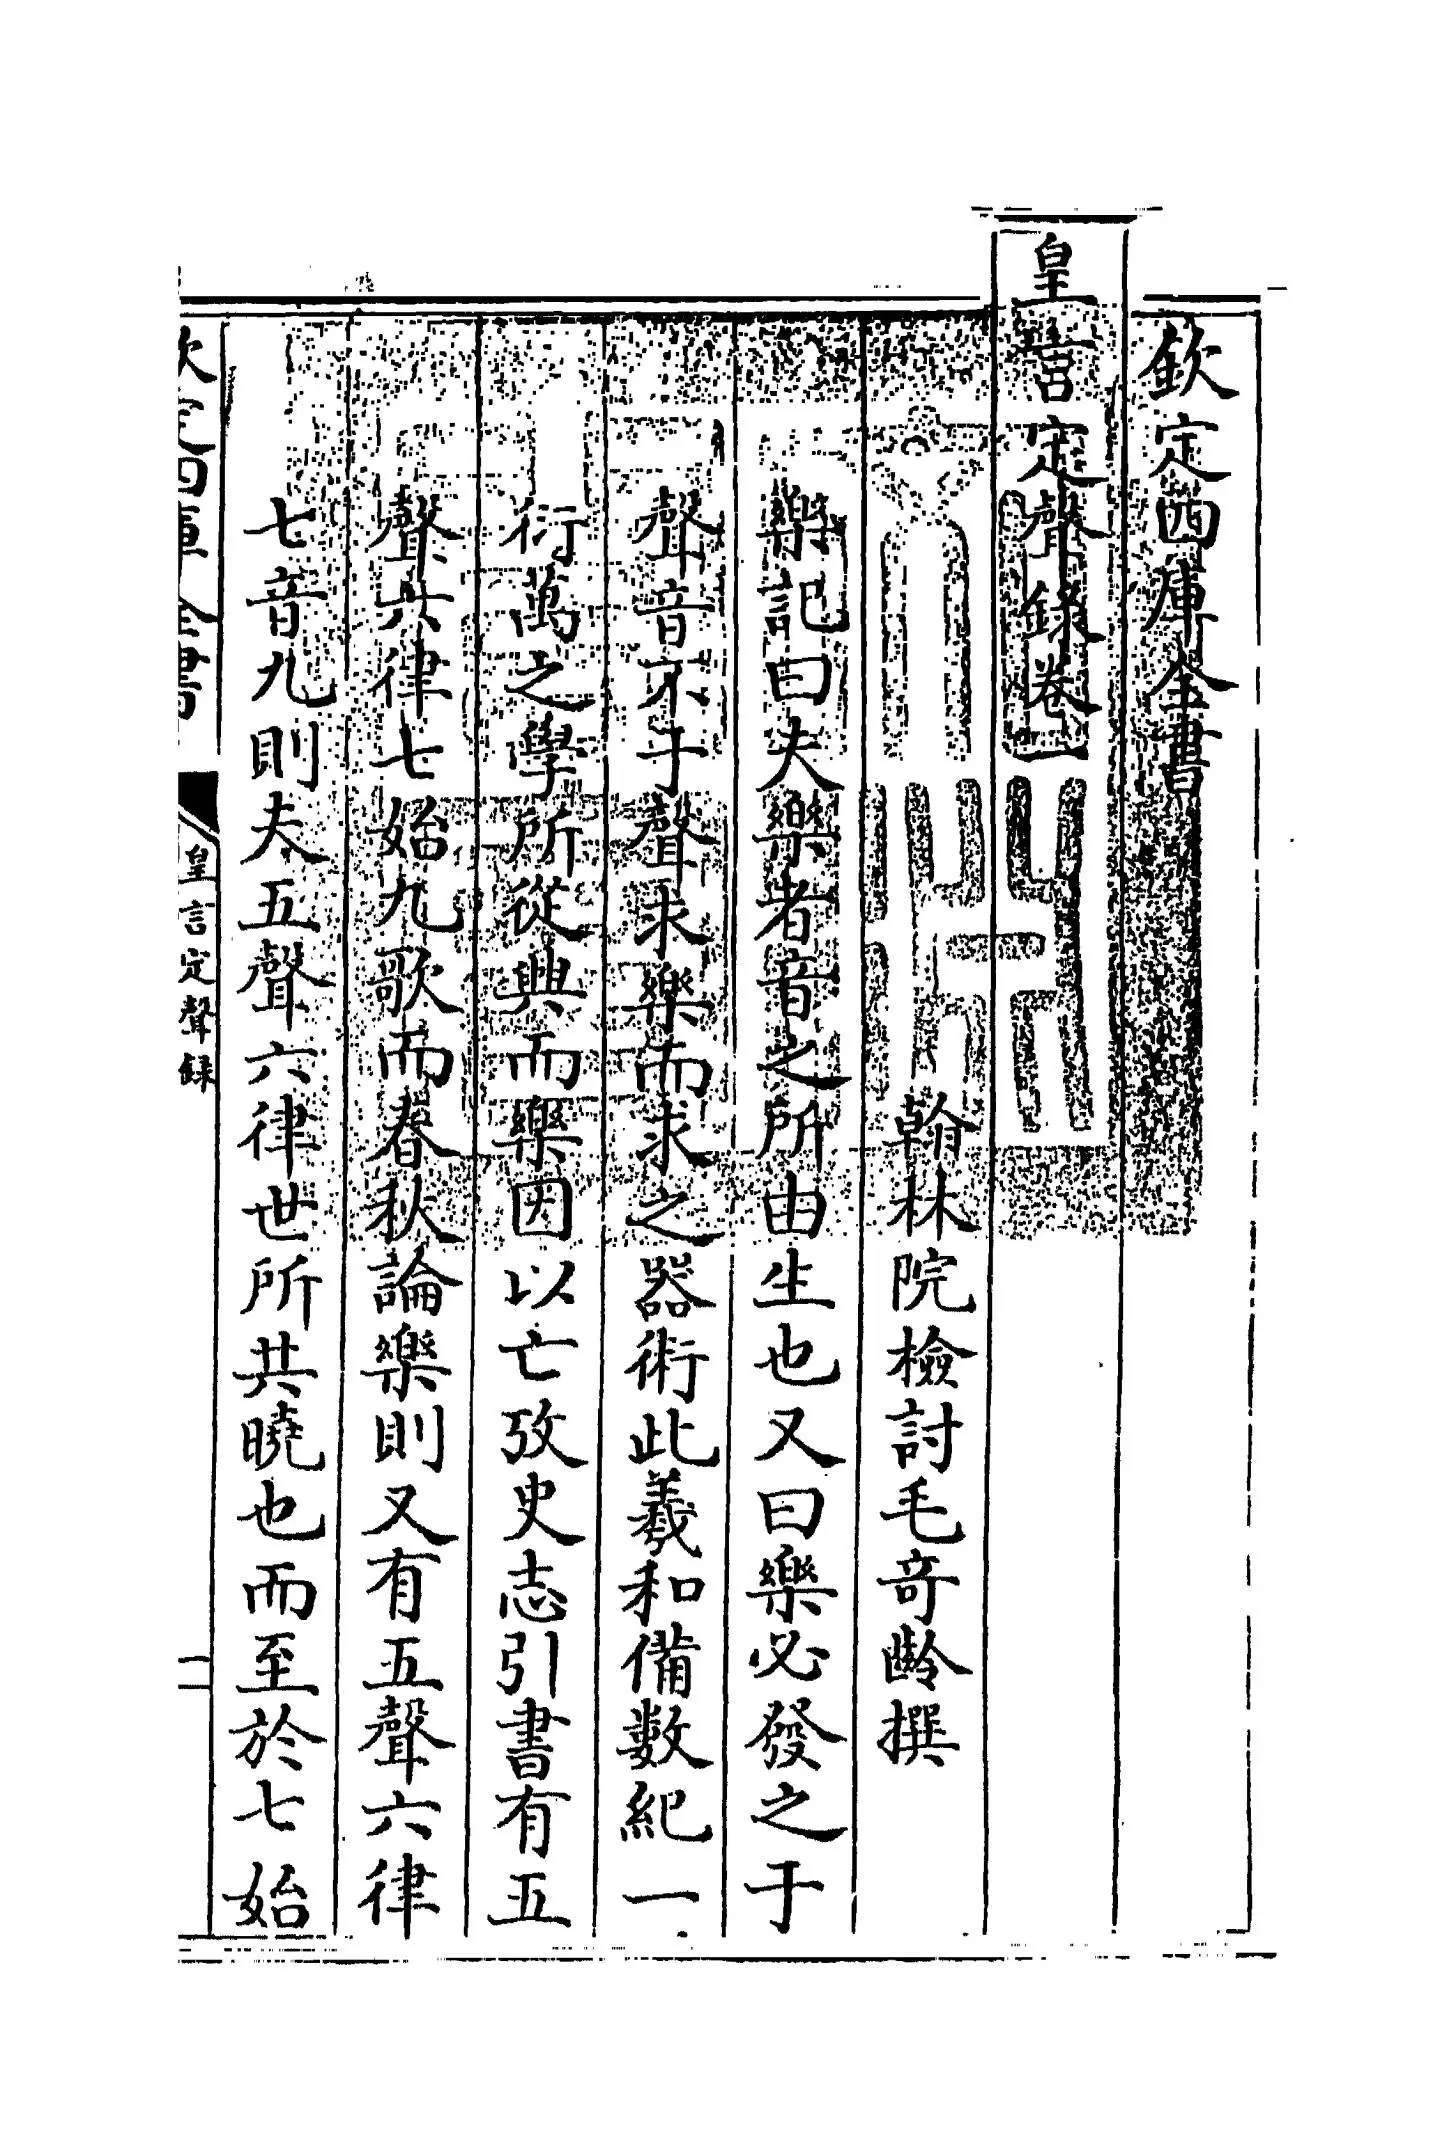 欽定四庫全書
皇言定聲錄卷一
翰林院檢討毛奇齡撰
樂記曰夫樂者音之所由生也又曰樂必發之于
聲音不于聲求樂而求之器術此羲和備數紀一
衍萬之學所從興而樂因以亡攷史志引書有五
聲六律七始九歌而春秋論樂則又有五聲六律
七音九則夫五聲六律世所共曉也而至於七始
欽定四庫全書
皇言定聲錄
一